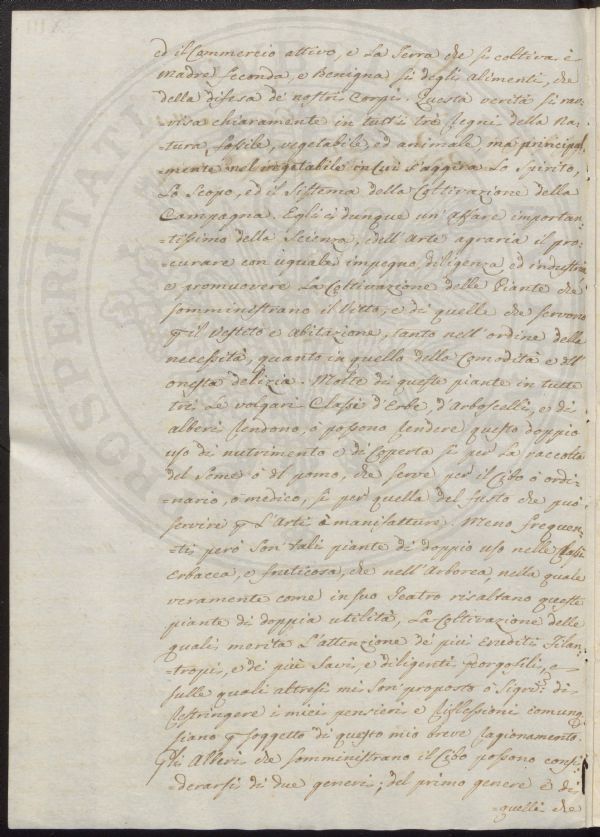 ed il Commercio attivo, e La Terra che si coltiva è
Madre feconda, e Benigna sì degli alimenti, che
della difesa de' nostri Corpi. Questa verità si rav=
=visa chiaramente in tutti trè Regni della Na=
=tura, fossile, vegetabile, ed animale, ma principal=
=mente nel vegetabile in cui s'aggira Lo Spirito,
Lo Scopo, ed il Sistema della Coltivazione della
Campagna. Egli è dunque un' Affare importan=
=tissimo della Scienza, dell'Arte agraria il pro=
=curare con uguale impegno, diligenza ed industria
e promuovere La Coltivazione delle Piante che
somministrano il Vitto, e di quelle che servono
p il Vestito e Abitazione, tanto nell'ordine della
necessità, quanto in quello della Comodità e dell'
onesta delizia. Molte di queste piante in tutte
tre Le volgari Classi d'Erbe, d'Arboscelli, e di
alberi rendono, ò possono rendere questo doppio
uso di nutrimento e di Coperta sì per La raccolta
del Seme ò del pomo, che serve per il Cibo ò ordi=
=nario, o medico, sì per quella del fusto che può
servire p L'Arti e manifatture. Meno frequen=
=ti però son tali piante di doppio uso nelle Classi
Erbacea, e fruticosa, che nell'Arborea, nella quale
veramente come in suo Teatro risaltano queste
piante di doppia utilità, La Coltivazione delle
quali merita L'attenzione de' più Eruditi Filan=
=tropi, e de' più Savi, e diligenti Georgofili, e
sulle quali altresì mi son proposto ò Sigri: di
restringere i miei pensieri e Riflessioni comunq
siano p soggetto di questo mio breve ragionamento.
Gli Alberi che somministrano il Cibo possono consi=
=derarsi di due generi, del primo genere è di
=quelli che
PROSPERITATI